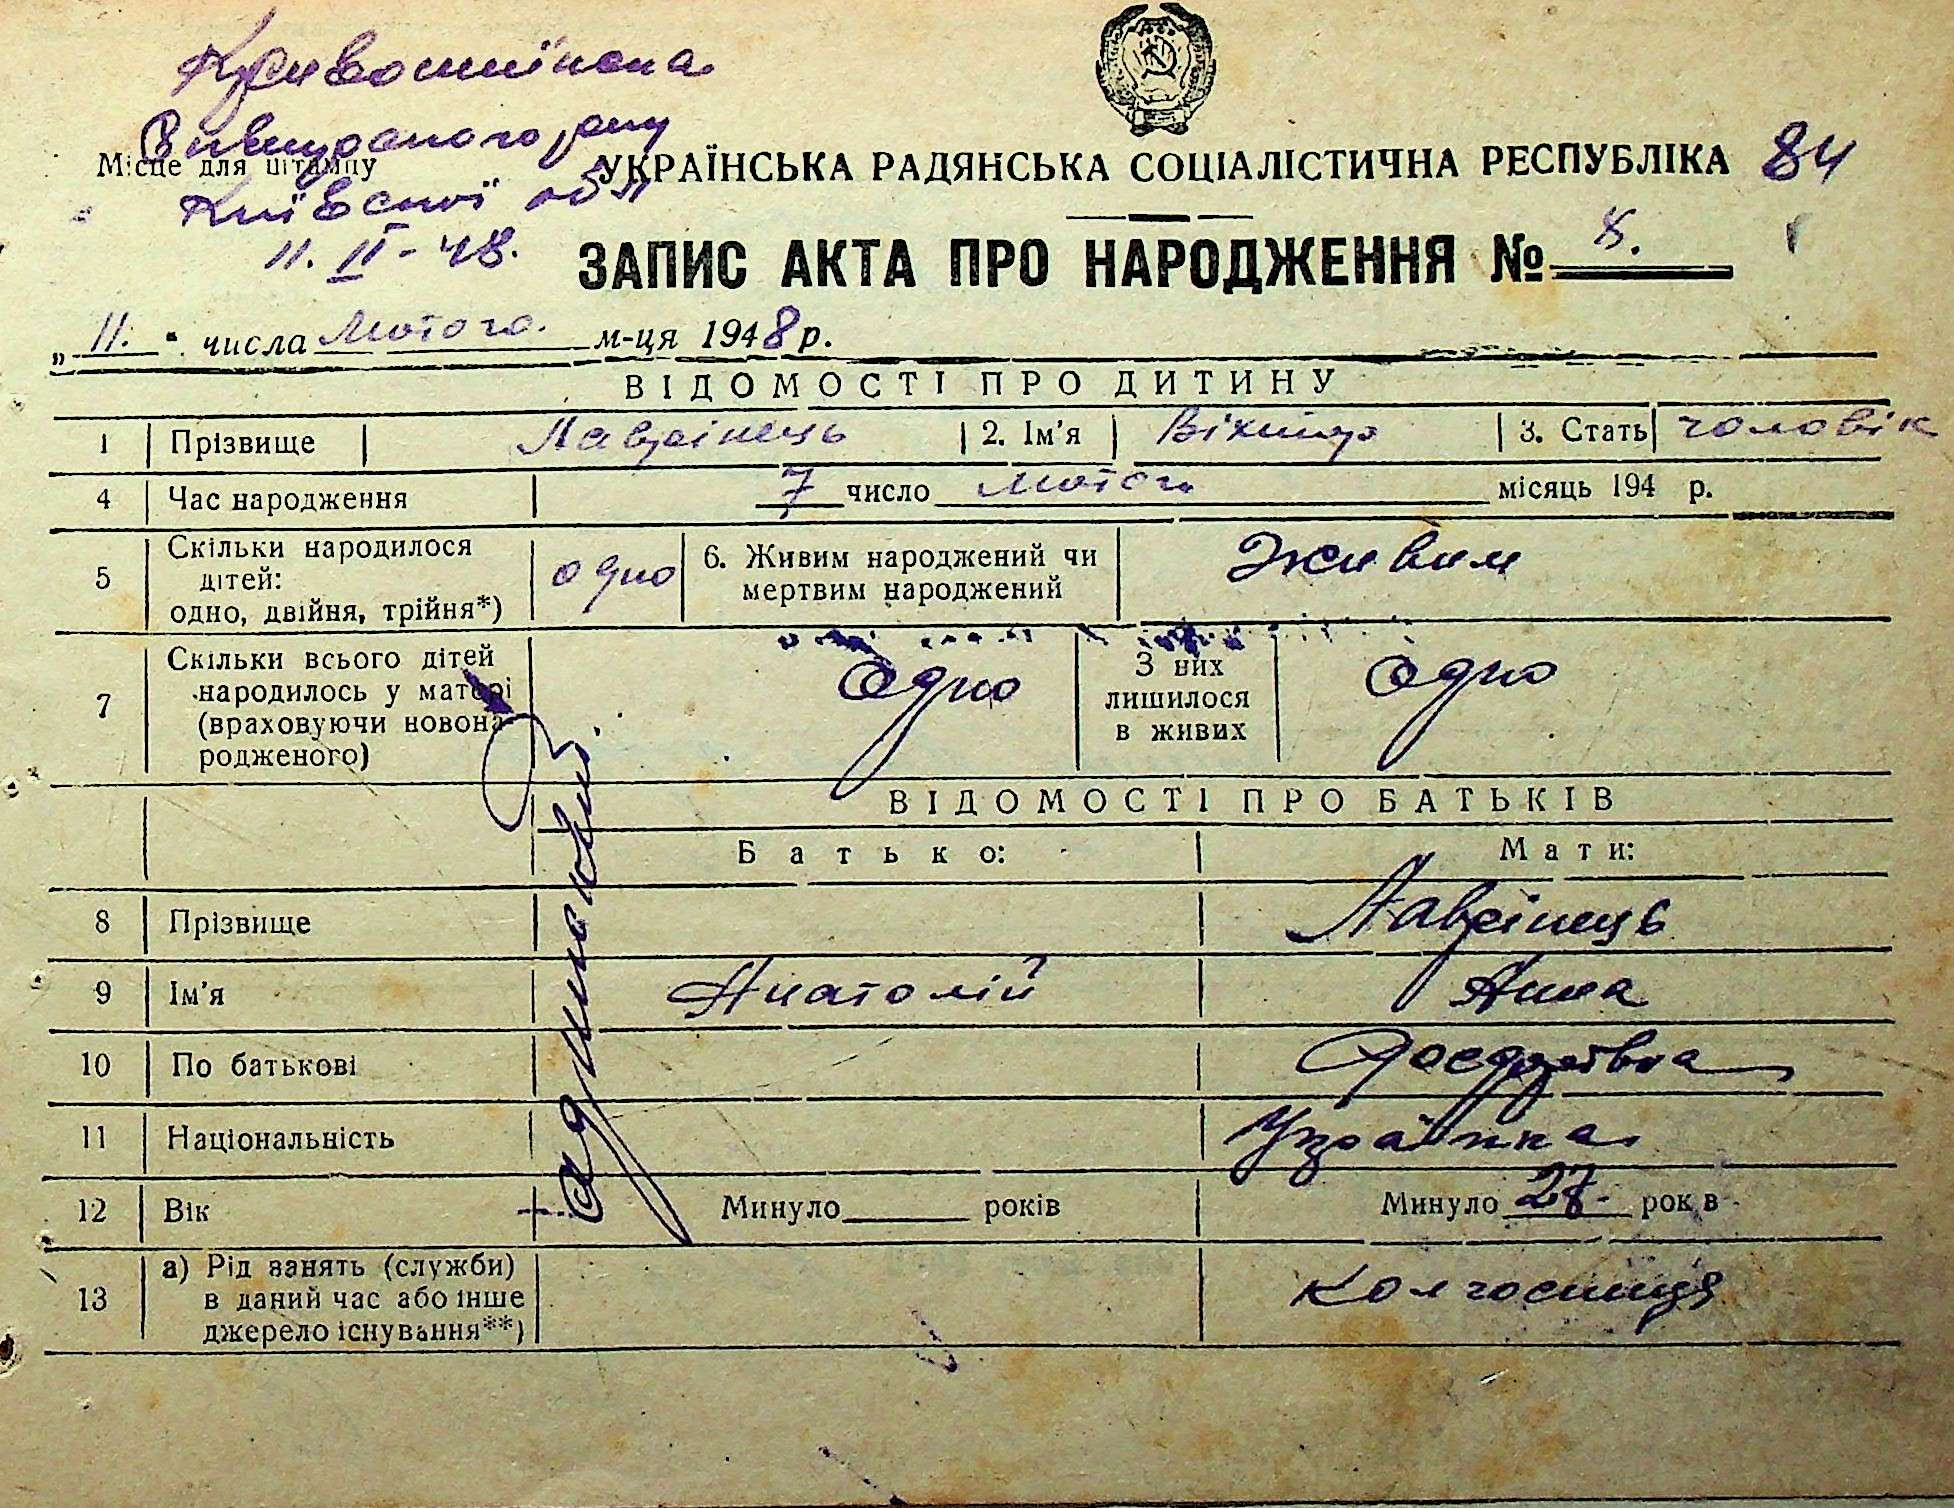 Кривошиїнська
району
Місце для штампу
Київської обл
11. II - 48.
УКРАЇНСЬКА РАДЯНСЬКА СОЦІАЛІСТИЧНА РЕСПУБЛІКА 84
ЗАПИС АКТА ПРО НАРОДЖЕННЯ № 8.
„ 11. “ числа Лютого. м-ця 1948 р.
ВІДОМОСТІ ПРО ДИТИНУ
1 Прізвище Лаврінець 2. Ім'я Віктор 3. Стать чоловік
4 Час народження 7 число лютого місяць 194 р.
5 Скільки народилося дітей: одно, двійня, трійня*) одно 6. Живим народжений чи мертвим народжений Живим
7 Скільки всього дітей народилось у матері (враховуючи новона родженого) Одно З них лишилося в живих Одно
ВІДОМОСТІ ПРО БАТЬКІВ
Батько: Мати:
8 Прізвище Лаврінець
9 Ім'я Анатолій Анна
10 По батькові Федорівна
11 Національність Українка
12 Вік Минуло років Минуло 27 рок в
13 а) Рід занять (служби) в даний час або інше джерело існування**) колгоспниця